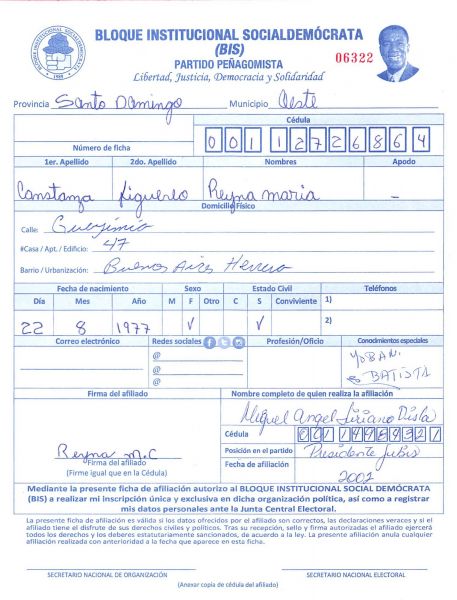 BLOQUE INSTITUCIONAL SOCIALDEMÓCRATA
(BIS)
PARTIDO PEÑAGOMISTA
06322
Libertad, Justicia, Democracia y Solidaridad
Provincia Santo Domingo Municipio Oeste
Cédula
Número de ficha 00112726864
1er. Apellido 2do. Apellido Nombres Apodo
Constanza Figuereo Reyna maria -
Domicilio Físico
Calle:
#Casa / Apt. / Edificio: 47
Barrio / Urbanización: Buenos Aires Herrera
Fecha de nacimiento Sexo Estado Civil Teléfonos
Día Mes Año M F Otro C S Conviviente 1)
22 8 1977 √ √ 2)
Correo electrónico Redes sociales Profesión/Oficio Conocimientos especiales
@ YOBAN.
@ BATISTA
@
Firma del afiliado Nombre completo de quien realiza la afiliación
Miguel Angel
Cédula
Reyna M.C Posición en el partido Presidente
Firma del afiliado
(Firma igual que en la Cédula) Fecha de afiliación
Mediante la presente ficha de afiliación autorizo al BLOQUE INSTITUCIONAL SOCIAL DEMÓCRATA
(BIS) a realizar mi inscripción única y exclusiva en dicha organización política, así como a registrar
mis datos personales ante la Junta Central Electoral.
La presente ficha de afiliación es válida si los datos ofrecidos por el afiliado son correctos, las declaraciones veraces y si el
afiliado tiene el disfrute de sus derechos civiles y políticos. Tras su recepción, sello y firma autorizadas el afiliado ejercerá
todos los derechos y los deberes estatutariamente sancionados, de acuerdo a la ley. La presente afiliación anula cualquier
afiliación realizada con anterioridad a la fecha que aparece en esta ficha.
SECRETARIO NACIONAL DE ORGANIZACIÓN SECRETARIO NACIONAL ELECTORAL
(Anexar copia de cédula del afiliado)